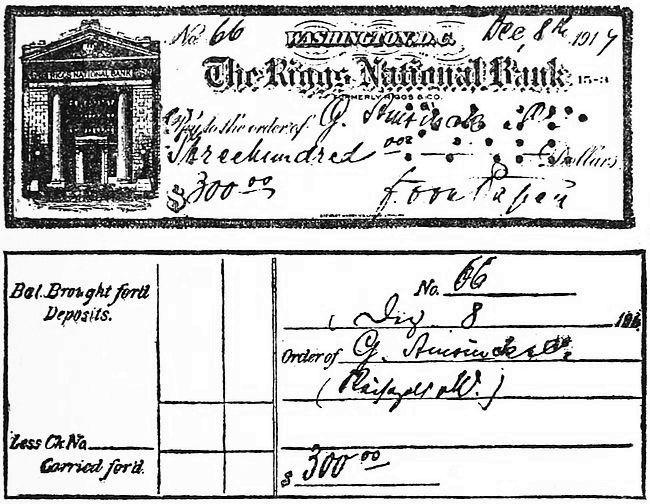 RIGGS NATIONAL BANK
No. 66 WASHINGTON, D.C. Dec, 8th, 1914
The Riggs National Bank 15-3
FORMERLY RIGGS & CO.
Pay to the order of G. Amsinck & Co.
Threehundred 00 Dollars
$300 00 F von Papen
Bal. Brought for'd
Deposits.
Less Ck No
Carried for'd.
No. 66
Dez 8 191
Order of G. Amsinck & Co.
$300 00